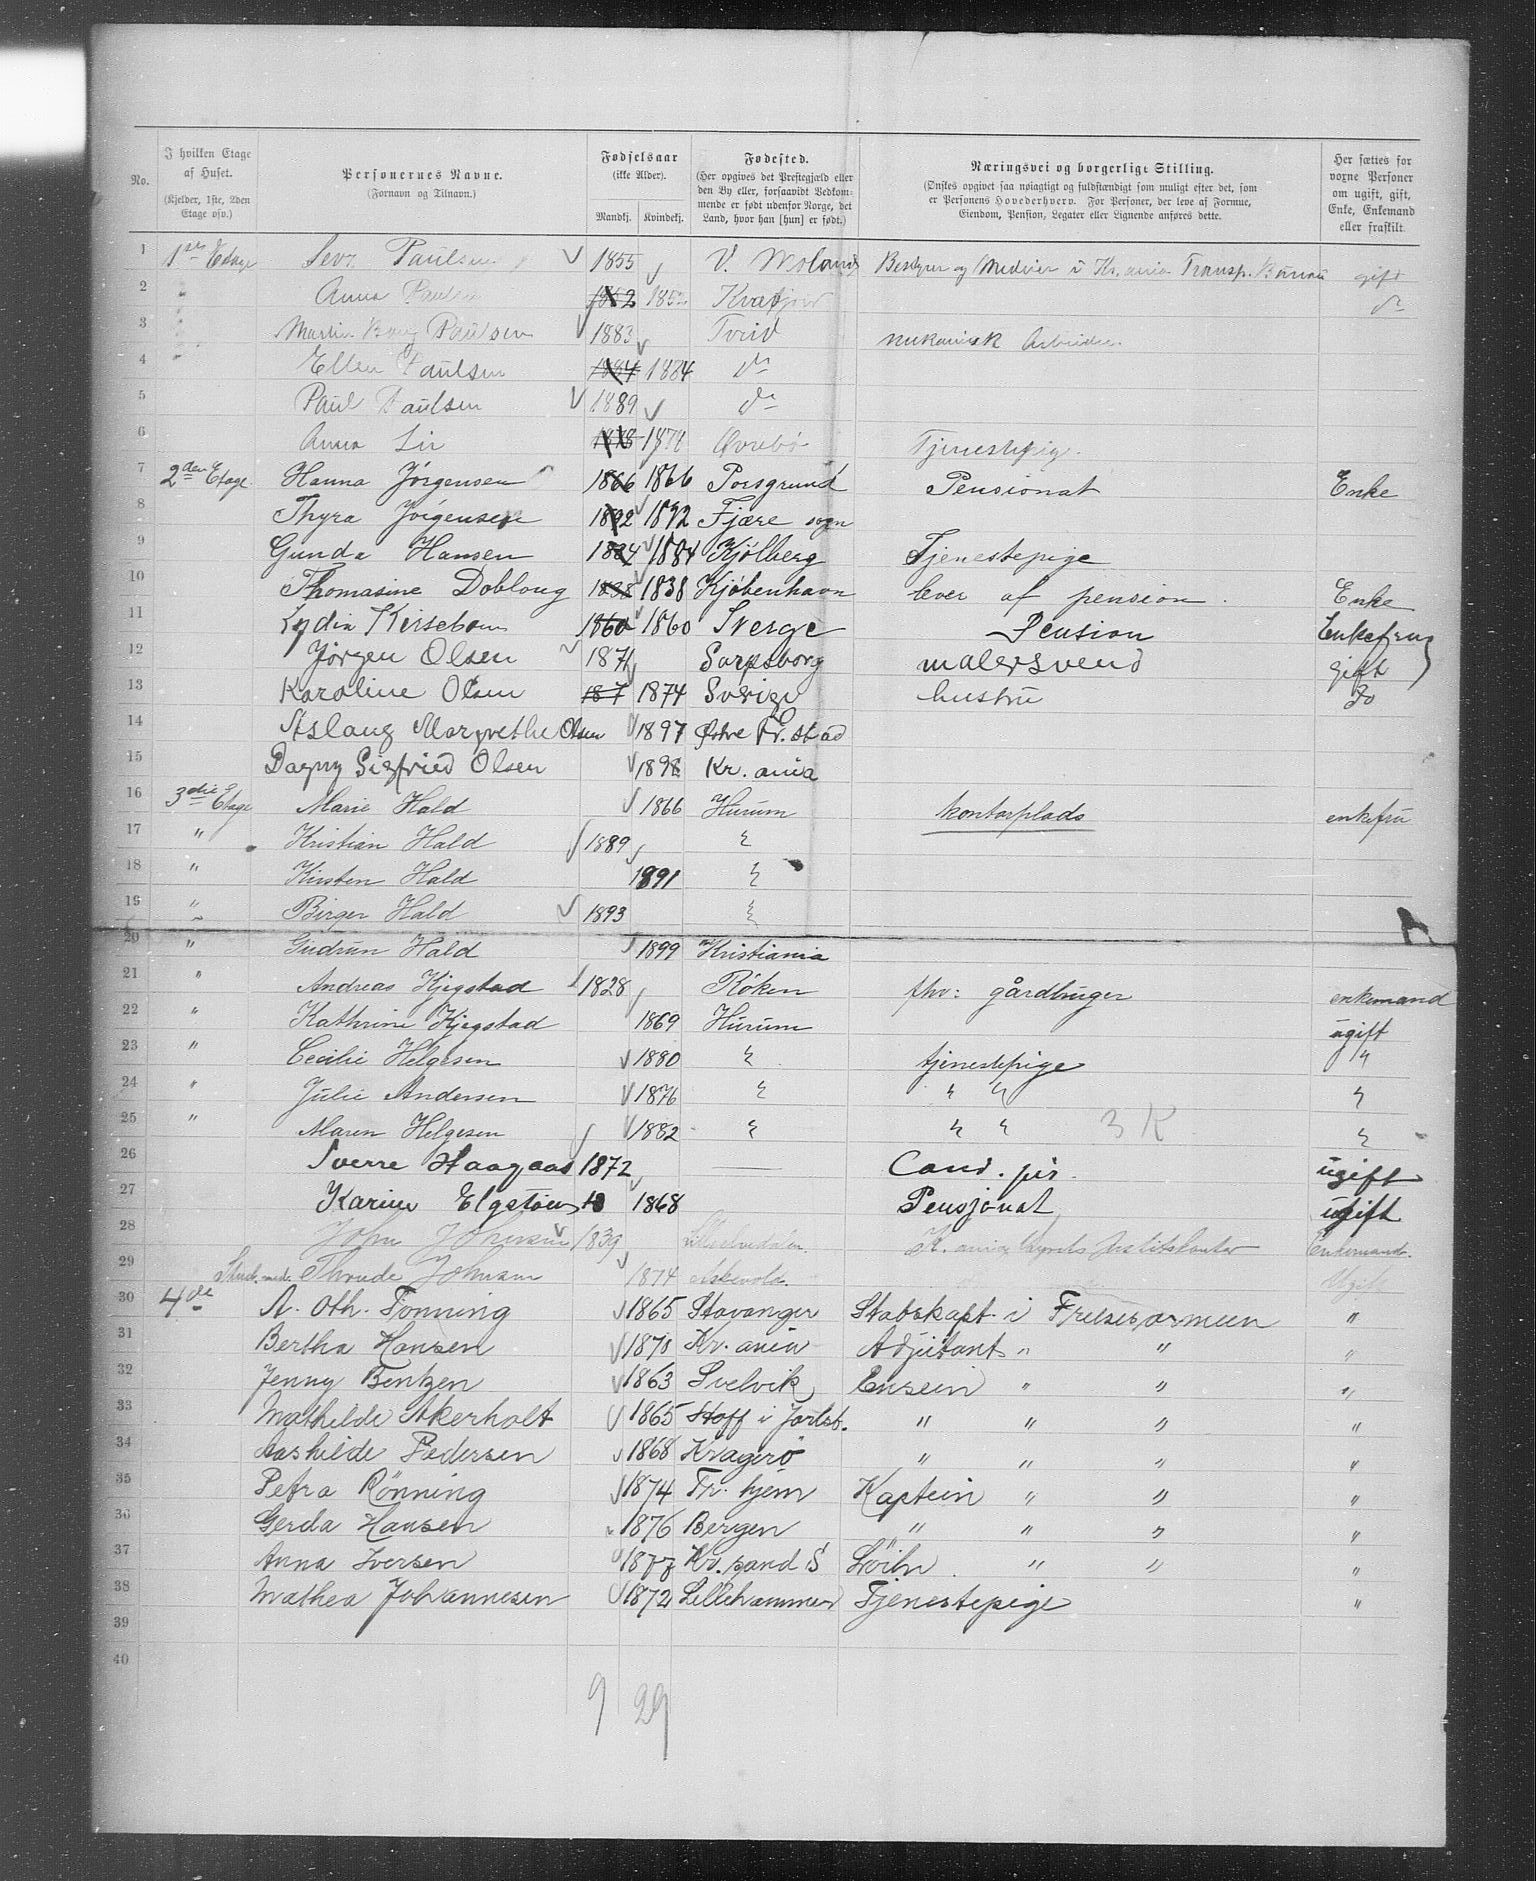 No.
I hvilken Etage af Huset.
(Kjelder, 1ste, 2den Etage osv.)
Personernes Navne.
(Fornavn og Tilnavn.)
Fødselsaar
(ikke Alder).
Mandkj. Kvindekj.
Fødested.
(Her opgives det Prestegjæld eller den By eller, forsaavidt Vedkommende er født udenfor Norge, det Land, hvor han [hun] er født.)
Næringsvei og borgerlige Stilling.
(Ønskes opgivet saa nøiagtigt og fuldstændigt som muligt efter det, som er Personens Hovederhverv. For Personer, der leve af Formue, Eiendom, Pension, Legater eller Lignende anføres dette.
Her sættes for voxne Personer om ugift, gift, Enke, Enkemand eller fraskilt.
1 1ste Etage Paulsen 1855 V. Moland Bestyrer og i Kr.ania Transp. gift
2 Anna Paulsen 1862 1852 do
3 Martin Paulsen 1883 Tvid mekanisk Arbeider
4 Ellen Paulsen 1884 1884 do
5 Paul Paulsen 1889 do
6 Anna 1878 Øvrebø Tjenestepig.
7 2den Etage Hanna Jørgensen 1866 1866 Porsgrund Pensionat Enke
8 Thyra Jørgensen 1892 1892 Fjære sogn
9 Gunda Hansen 1884 1884 Kjølberg Tjenestepige
10 Thomasine Dobloug 1838 1838 Kjöbenhavn lever af pension Enke
11 Lydia Kirsebom 1860 1860 Sverge Pension Enkefrue
12 Jørgen Olsen 187 Sarpsborg malersvend gift
13 Karoline Olsen 187 1874 Sverige hustru do
14 Aslaug Margrethe Olsen 1897 Østre Fr.stad
15 Dagny Sigfried Olsen 1898 Kr. ania
16 3die Etage Marie Hald 1866 Hurum kontorplads enkefru
17 " Kristian Hald 1889 "
18 " Kirsten Hald 1891 "
19 " Birger Hald 1893 "
20 " Gudrun Hald 1899 Kristiania
21 " Andreas Kjegstad 1828 Røken fhv: gårdbruger enkemand
22 " Kathrine Kjegstad 1869 Hurum ugift
23 " Cecilie Helgesen 1880 " tjenestepige "
24 " Julie Andersen 1876 " " " "
25 " Maren Helgesen 1882 " " " 3 K "
26 Sverre Haagaas 1872 — Cand. jur. ugift
27 Karine Elgstøen 18 1868 Pensjonat ugift
28 John Johnsen 1839 Enkemand.
29 Stud. med. Thrude Johnsen 1874 Askevold. Ugift
30 4de A. Oth. Tonning 1865 Stavanger Stabskapt. i Frelsesarmeen "
31 Bertha Hansen 1870 Kr. ania Adjutant " " "
32 Jenny Bentzen 1863 Svelvik Ensein " " "
33 Mathilde Akerholt 1865 Stoff i Jarlsb. " " " "
34 Aashilde Pedersen 1868 Kragerö " " " "
35 Petra Rønning 1874 Tr. hjem Kaptein " " "
36 Gerda Hansen 1876 Bergen " " " "
37 Anna Iversen 1877 Kr. sand S Löitn. " " "
38 Mathea Johannesen 1872 Lillehammer Tjenestepige "
39
40
9 29